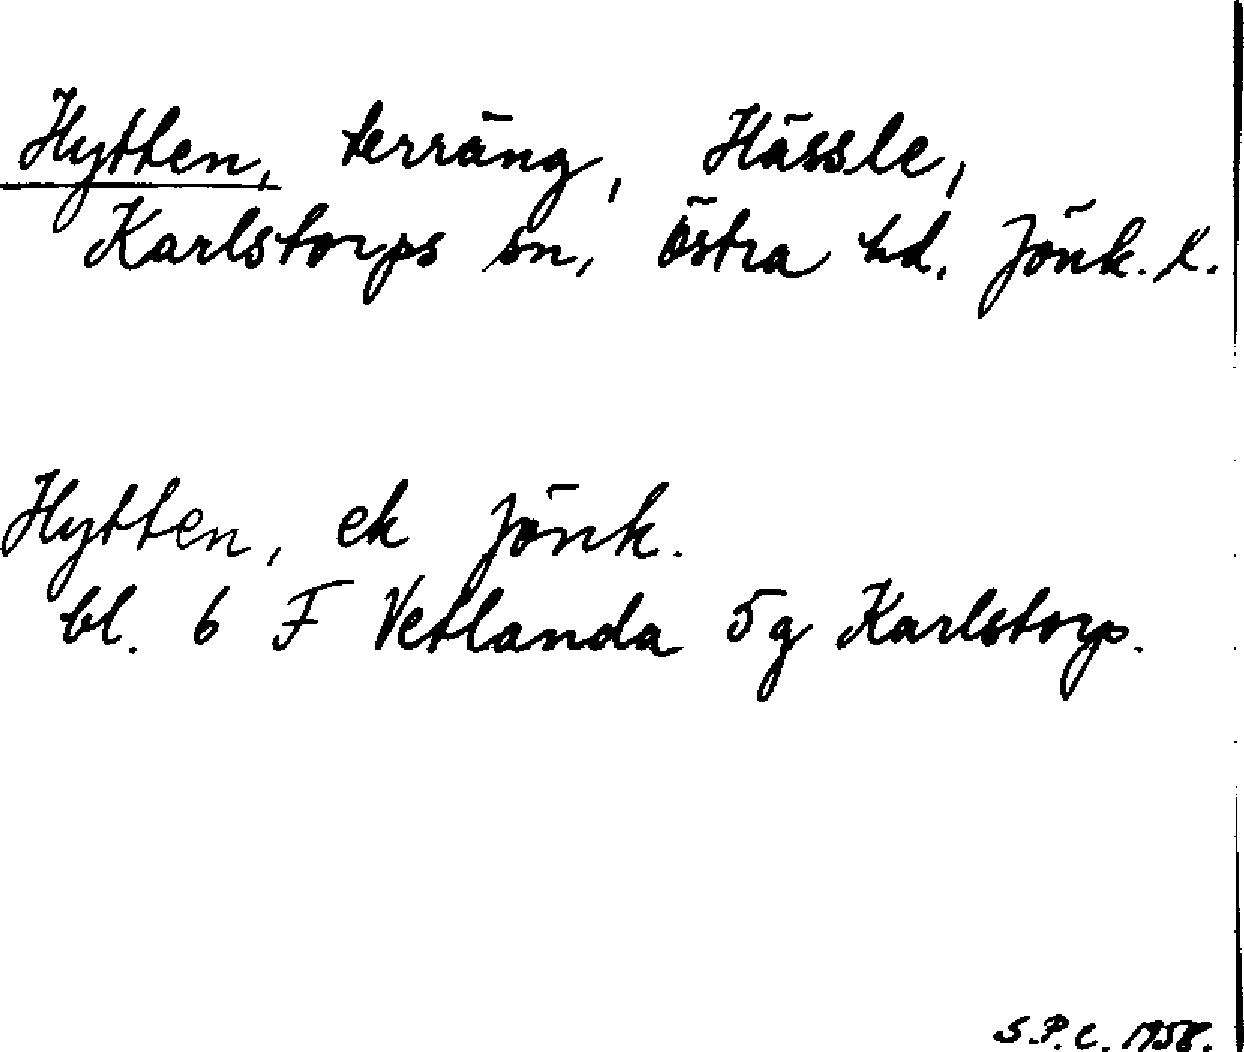 Hytten, terräng, Hässle,
Karlstorps sn, östra hd. Jönk. l.
Hytten, ek Jönk.
bl. 6 F Vetlanda 5g Karlstorp.
S.P.C. 1958.